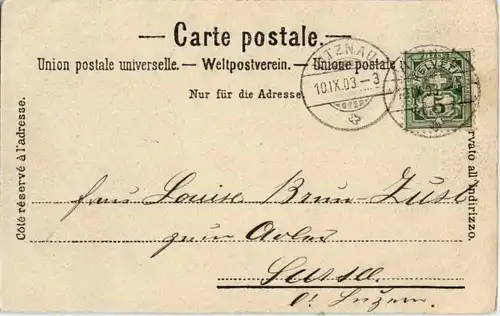 — Carte postale. —
Union postale universelle. — Weltpostverein. — Unione postale u
Nur für die Adresse.
ITZNAU
10.IX.03.–3
HELVETIA
5
Côté réservé à l'adresse.
rvato all'indirizzo.
Frau Louise Brun-Züst
zum Adler
Sursee
Ct. Luzern.